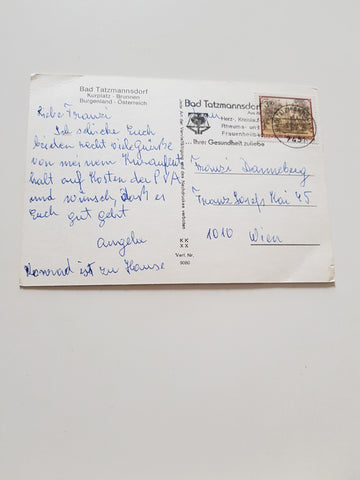 Bad Tatzmannsdorf
Kurplatz - Brunnen
Burgenland - Österreich
Liebe Franzi
Ich schicke Euch
beiden recht viele Grüße
von meinem Kuraufent
halt auf Kosten der PVA
und wünsch daß es
Euch gut geht
Angela
Konrad ist zu Hause
Bad Tatzmannsdorf
Herz-, Kreislauf
Rheuma- un
Frauenheilba
... Ihrer Gesundheit zuliebe
7431
Franzi Danneberg
Franz Josefs Kai 45
1010 Wien
KK
XX
Verl. Nr.
9080